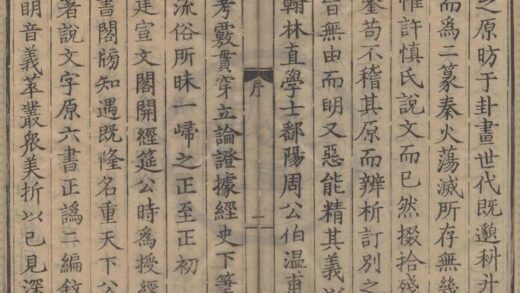 之原昉于卦畫世代既邈科斗
而為二篆秦火蕩滅所存無幾
惟許慎氏說文而已然掇拾殘
筌茍不稽其原而辨析訂別之
音無由而明又惡能精其義
翰林直學士鄱陽周公伯溫甫
序
一
考覈貫穿立論證據經史下筆
流俗所昧一歸之正至正初
廷宣文閣開經筵公時為授經
書閣牓知遇既隆名重天下公
著說文字原六書正譌二編敘
明音義萃叢衆美折以己見深